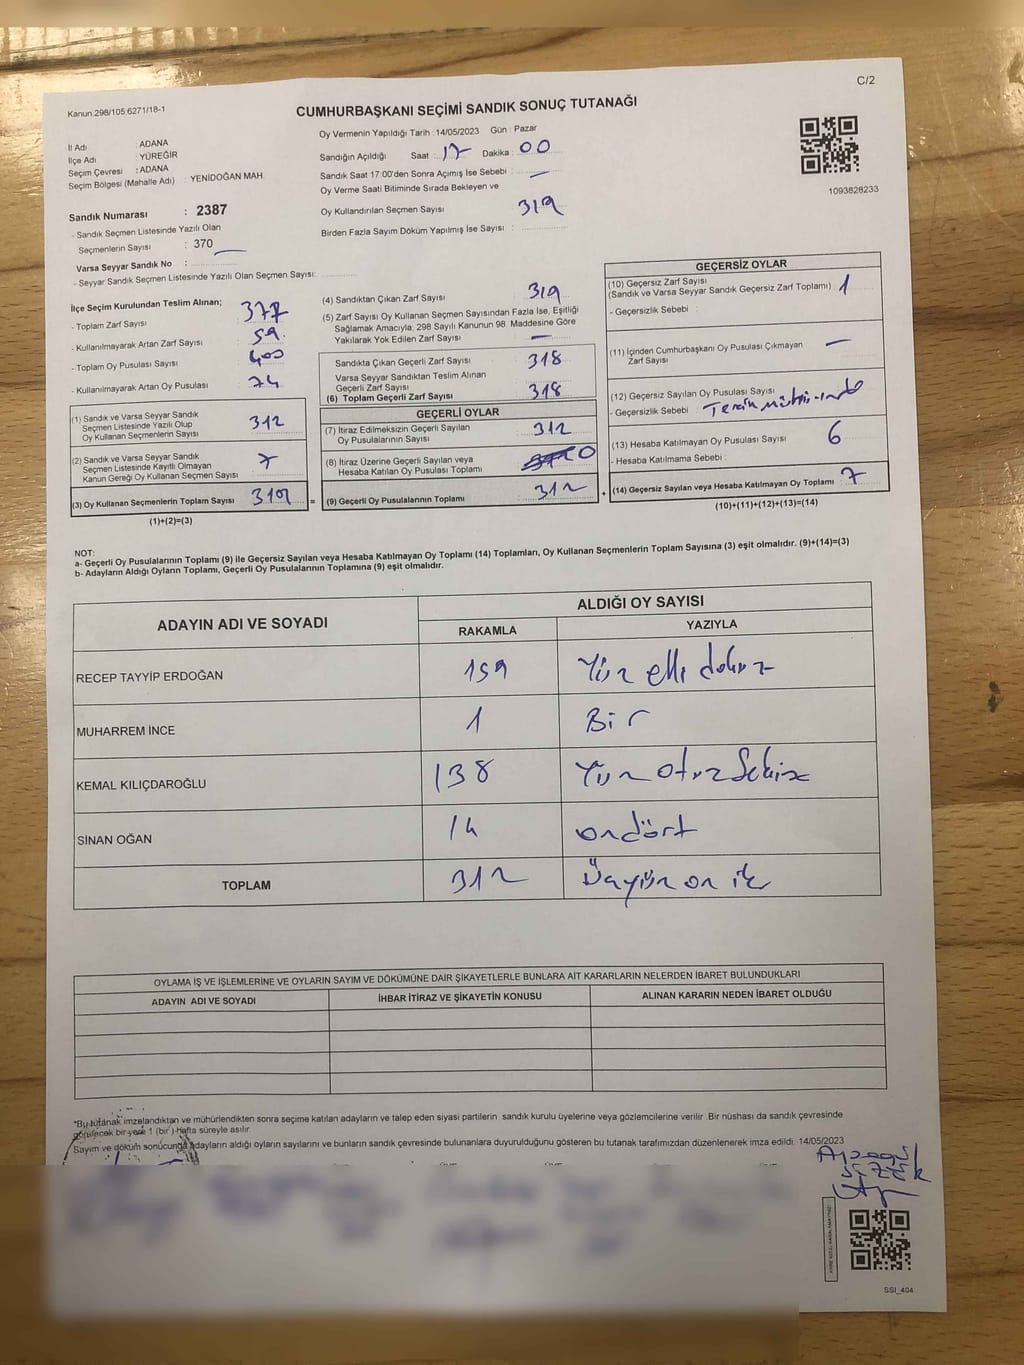 C/2
Kanun 298/105;6271/18-1
CUMHURBAŞKANI SEÇİMİ SANDIK SONUÇ TUTANAĞI
İl Adı : ADANA
İlçe Adı : YÜREĞİR
Seçim Çevresi : ADANA
Seçim Bölgesi (Mahalle Adı) : YENİDOĞAN MAH.
Sandık Numarası : 2387
- Sandık Seçmen Listesinde Yazılı Olan
Seçmenlerin Sayısı : 370
Varsa Seyyar Sandık No :
- Seyyar Sandık Seçmen Listesinde Yazılı Olan Seçmen Sayısı:
Oy Vermenin Yapıldığı Tarih : 14/05/2023 Gün : Pazar
Sandığın Açıldığı Saat : 17 Dakika : 00
Sandık Saat 17:00'den Sonra Açımış İse Sebebi : —
Oy Verme Saati Bitiminde Sırada Bekleyen ve
Oy Kullandırılan Seçmen Sayısı 319
Birden Fazla Sayım Döküm Yapılmış İse Sayısı :
1093828233
İlçe Seçim Kurulundan Teslim Alınan;
- Toplam Zarf Sayısı 377
- Kullanılmayarak Artan Zarf Sayısı 59
- Toplam Oy Pusulası Sayısı 400
- Kullanılmayarak Artan Oy Pusulası 74
(1) Sandık ve Varsa Seyyar Sandık
Seçmen Listesinde Yazılı Olup
Oy Kullanan Seçmenlerin Sayısı 312
(2) Sandık ve Varsa Seyyar Sandık
Seçmen Listesinde Kayıtlı Olmayan
Kanun Gereği Oy Kullanan Seçmen Sayısı 7
(3) Oy Kullanan Seçmenlerin Toplam Sayısı 319 =
(1)+(2)=(3)
(4) Sandıktan Çıkan Zarf Sayısı 319
(5) Zarf Sayısı Oy Kullanan Seçmen Sayısından Fazla İse, Eşitliği
Sağlamak Amacıyla; 298 Sayılı Kanunun 98. Maddesine Göre
Yakılarak Yok Edilen Zarf Sayısı —
Sandıkta Çıkan Geçerli Zarf Sayısı 318
Varsa Seyyar Sandıktan Teslim Alınan
Geçerli Zarf Sayısı
(6) Toplam Geçerli Zarf Sayısı 318
GEÇERLİ OYLAR
(7) İtiraz Edilmeksizin Geçerli Sayılan
Oy Pusulalarının Sayısı 312
(8) İtiraz Üzerine Geçerli Sayılan veya
Hesaba Katılan Oy Pusulası Toplamı 0
(9) Geçerli Oy Pusulalarının Toplamı 312 +
GEÇERSİZ OYLAR
(10) Geçersiz Zarf Sayısı
(Sandık ve Varsa Seyyar Sandık Geçersiz Zarf Toplamı) 1
- Geçersizlik Sebebi :
(11) İçinden Cumhurbaşkanı Oy Pusulası Çıkmayan
Zarf Sayısı —
(12) Geçersiz Sayılan Oy Pusulası Sayısı
- Geçersizlik Sebebi :
(13) Hesaba Katılmayan Oy Pusulası Sayısı 6
- Hesaba Katılmama Sebebi :
(14) Geçersiz Sayılan veya Hesaba Katılmayan Oy Toplamı : 7
(10)+(11)+(12)+(13)=(14)
NOT:
a- Geçerli Oy Pusulalarının Toplamı (9) ile Geçersiz Sayılan veya Hesaba Katılmayan Oy Toplamı (14) Toplamları, Oy Kullanan Seçmenlerin Toplam Sayısına (3) eşit olmalıdır. (9)+(14)=(3)
b- Adayların Aldığı Oyların Toplamı, Geçerli Oy Pusulalarının Toplamına (9) eşit olmalıdır.
ADAYIN ADI VE SOYADI ALDIĞI OY SAYISI
RAKAMLA YAZIYLA
RECEP TAYYİP ERDOĞAN 159 Yüz elli dokuz
MUHARREM İNCE 1 Bir
KEMAL KILIÇDAROĞLU 138 Yüz otuz Sekiz
SİNAN OĞAN 14 ondört
TOPLAM 312 Üçyüz on iki
OYLAMA İŞ VE İŞLEMLERİNE VE OYLARIN SAYIM VE DÖKÜMÜNE DAİR ŞİKAYETLERLE BUNLARA AİT KARARLARIN NELERDEN İBARET BULUNDUKLARI
ADAYIN ADI VE SOYADI İHBAR İTİRAZ VE ŞİKAYETİN KONUSU ALINAN KARARIN NEDEN İBARET OLDUĞU
*Bu tutanak imzalandıktan ve mühürlendikten sonra seçime katılan adayların ve talep eden siyasi partilerin sandık kurulu üyelerine veya gözlemcilerine verilir. Bir nüshası da sandık çevresinde
görülecek bir yere 1 (bir) Hafta süreyle asılır.
Sayım ve döküm sonucunda adayların aldığı oyların sayılarını ve bunların sandık çevresinde bulunanlara duyurulduğunu gösteren bu tutanak tarafımızdan düzenlenerek imza edildi. 14/05/2023
SSI_404